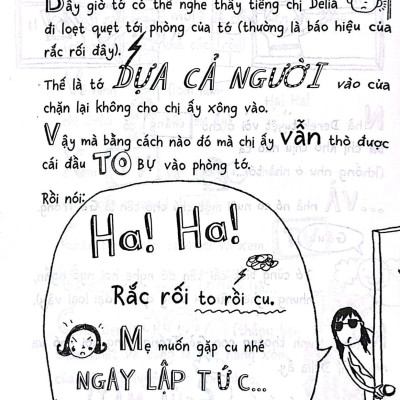 Bây giờ tớ có thể nghe thấy tiếng chị Delia
đi loẹt quẹt tới phòng của tớ (thường là báo hiệu của
rắc rối đây).
Thế là tớ DỰA CẢ NGƯỜI vào cửa
chặn lại không cho chị ấy xông vào.
Vậy mà bằng cách nào đó mà chị ấy vẫn thò được
cái đầu TO BỰ vào phòng tớ.
Rồi nói:
Ha! Ha!
Rắc rối to rồi cu.
Mẹ muốn gặp cu nhé
NGAY LẬP TỨC...